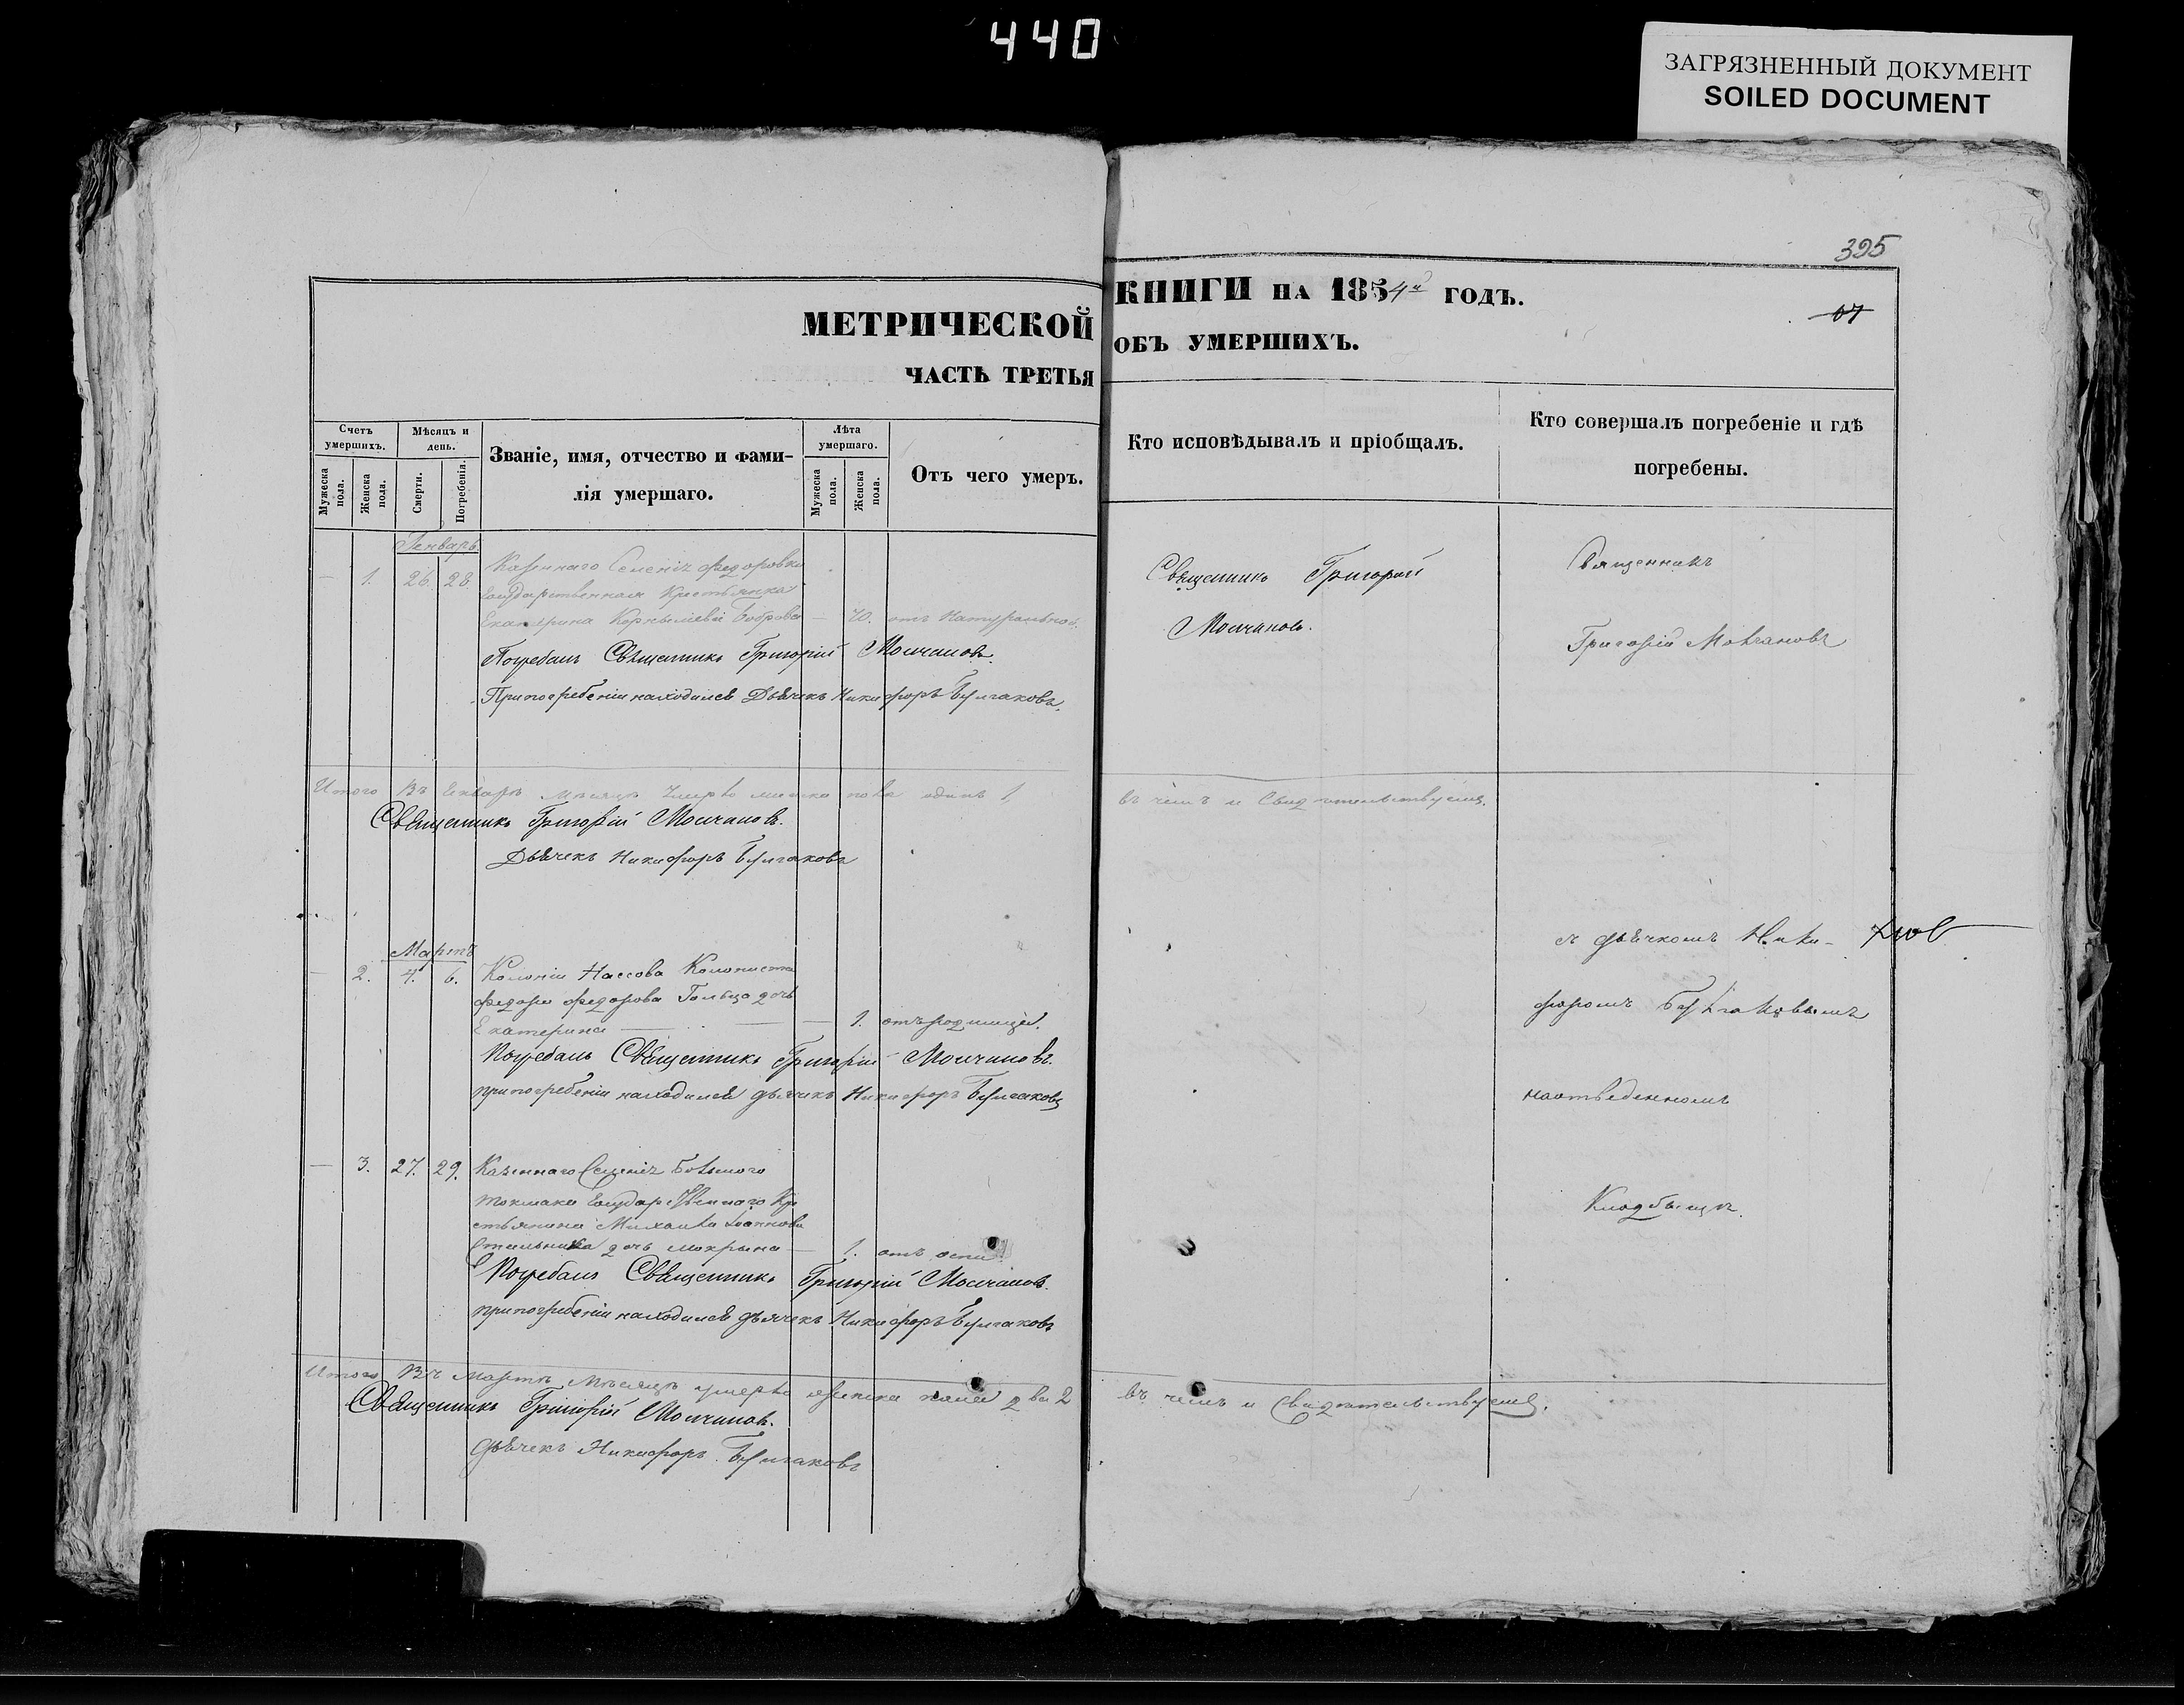 440
ЗАГРЯЗНЕННЫЙ ДОКУМЕНТ
SOILED DOCUMENT
МЕТРИЧЕСКОЙ
ЧАСТЬ ТРЕТЬЯ
Счетъ умершихъ.
Мужеска пола.
Женска пола.
Мѣсяцъ и день.
Смерти.
Погребенія.
Званіе, имя, отчество и фами-
лія умершаго.
Лѣта умершаго.
Мужеска пола.
Женска пола.
Отъ чего умеръ.
Генварь
1. 26. 28. Казеннаго Селенія Федоровки
Государственная Крестьянка
Екатерина Боброва — 70. отъ Натуральной.
Погребалъ Священникъ Григорій Молчановъ.
При погребеніи находился Дьячекъ Никифоръ Булгаковъ.
Итого Въ Генварѣ Мѣсяцѣ одинъ 1,
Священникъ Григорій Молчановъ.
Дьячекъ Никифоръ Булгаковъ
Мартъ
— 2. 4. 6. Колоніи Нассова Колониста
Федора Федорова Гольца дочь
Екатерина — — — 1. отъ родимца.
Погребалъ Священникъ Григорій Молчановъ.
при погребеніи находился дьячекъ Никифоръ Булгаковъ
— 3. 27. 29. Казеннаго Селенія Большого
Токмака Государственнаго Кре
стьянина Михаила Іоаннова
дочь Макрына — 1. отъ оспы
Погребалъ Священникъ Григорій Молчановъ.
при погребеніи находился дьячекъ Никифоръ Булгаковъ
Итого Въ Мартѣ Мѣсяцѣ умерло женска пола два 2
Священникъ Григорій Молчановъ.
Дьячекъ Никифоръ Булгаковъ
395
КНИГИ НА 1854й ГОДЪ.
ОБЪ УМЕРШИХЪ.
Кто исповѣдывалъ и пріобщалъ.
Кто совершалъ погребеніе и гдѣ
погребены.
Священникъ Григорій
Молчановъ.
Священникъ
Григорій Молчановъ
въ чемъ и Свидѣтельствуемъ.
съ дьячкомъ Ники-
форомъ Булгаковымъ
на отведенномъ
Кладбищѣ.
въ чемъ и Свидѣтельствуемъ.